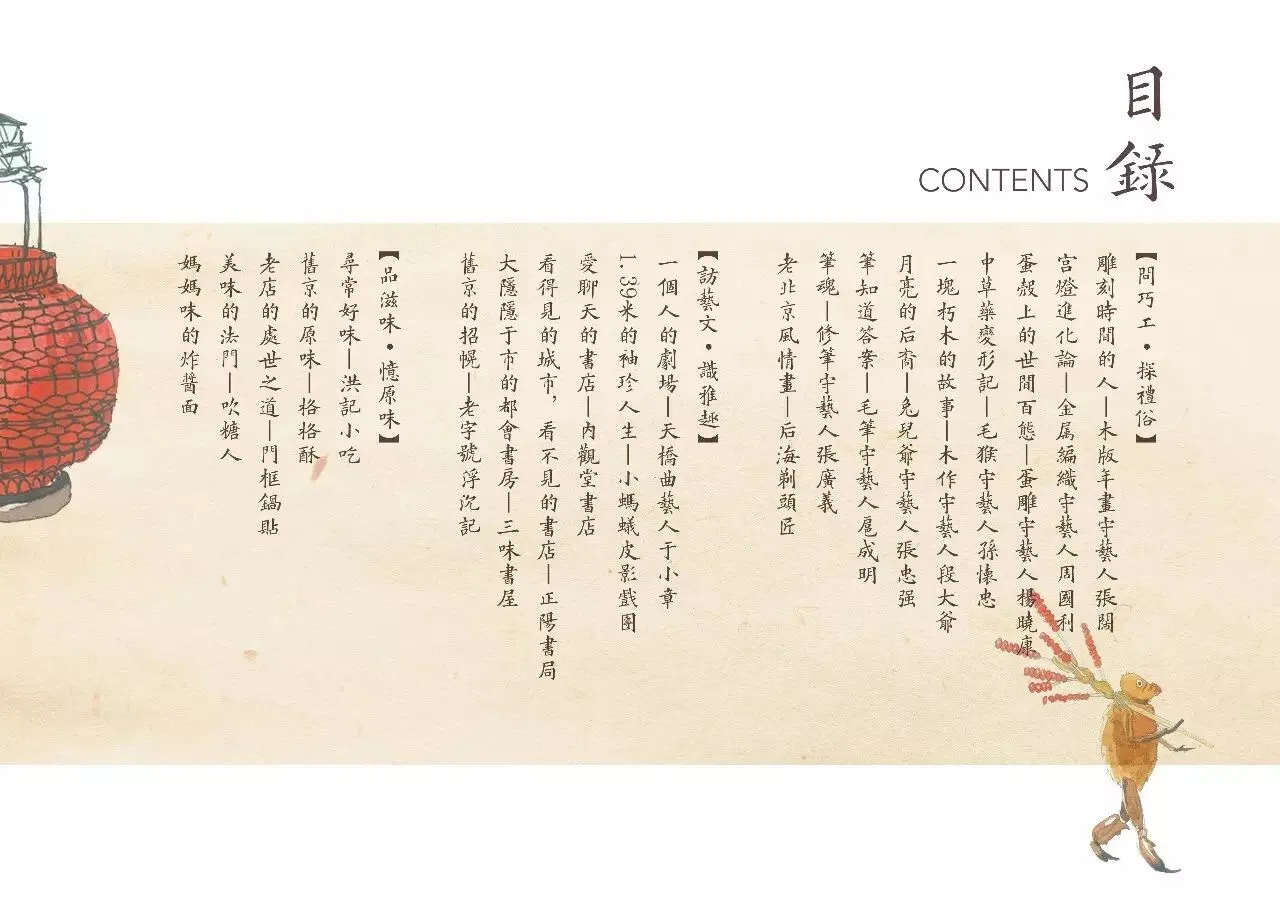 目錄
CONTENTS
【問巧工•探禮俗】
雕刻時間的人—木版年畫守藝人張闊
宮燈進化論—金属編織守藝人周國利
蛋殼上的世間百態—蛋雕守藝人楊曉康
中草藥變形記—毛猴守藝人孫懷忠
一塊朽木的故事—木作守藝人段大爺
月亮的后裔—兔兒爺守藝人張忠强
筆知道答案—毛筆守藝人扈成明
筆魂—修筆守藝人張廣義
老北京風情畫—后海剃頭匠
【訪藝文•識雅趣】
一個人的劇場—天橋曲藝人于小章
1.39米的袖珍人生—小螞蟻皮影戲團
愛聊天的書店—内觀堂書店
看得見的城市，看不見的書店—正陽書局
大隱隱于市的都會書房—三味書屋
舊京的招幌—老字號浮沉記
【品滋味•憶原味】
尋常好味—洪記小吃
舊京的原味—格格酥
老店的處世之道—門框鍋貼
美味的法門—吹糖人
媽媽味的炸醬面